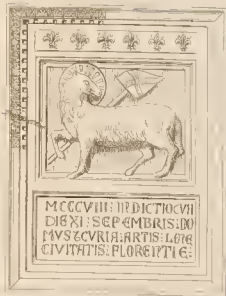 MCCCVIII: INDICTIOCVII
DIEXI: SEPEMBRIS: DO
MVS ⁊CVRIA: ARTIS: LANE
CIVITATIS: FLORENTIE: